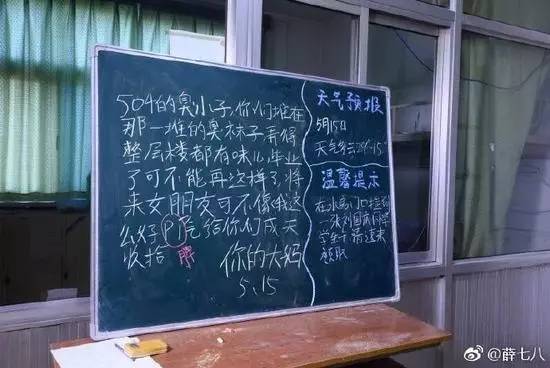 504的臭小子,你们堆在
那一堆的臭袜子弄得
整层楼都有味儿,毕业
了可不能再这样了,将
来女朋友可不像我这
么好PI气给你们成天
收拾 脾
你的大妈
5.15
天气预报
5月15日
天气
温馨提示
在水房门口捡到
张刘国
学生 请速来
领取
@薛七八